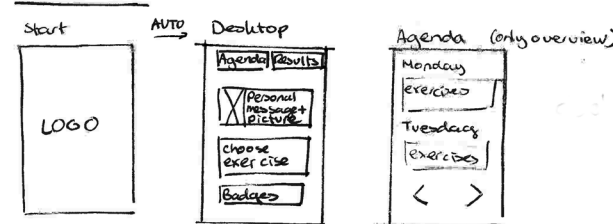 Start
AUTO
LOGO
Desktop
Agenda Results
Personal
message +
picture
choose
exercise
Badges
Agenda (only overview)
Monday
exercises
Tuesday
exercises
< >